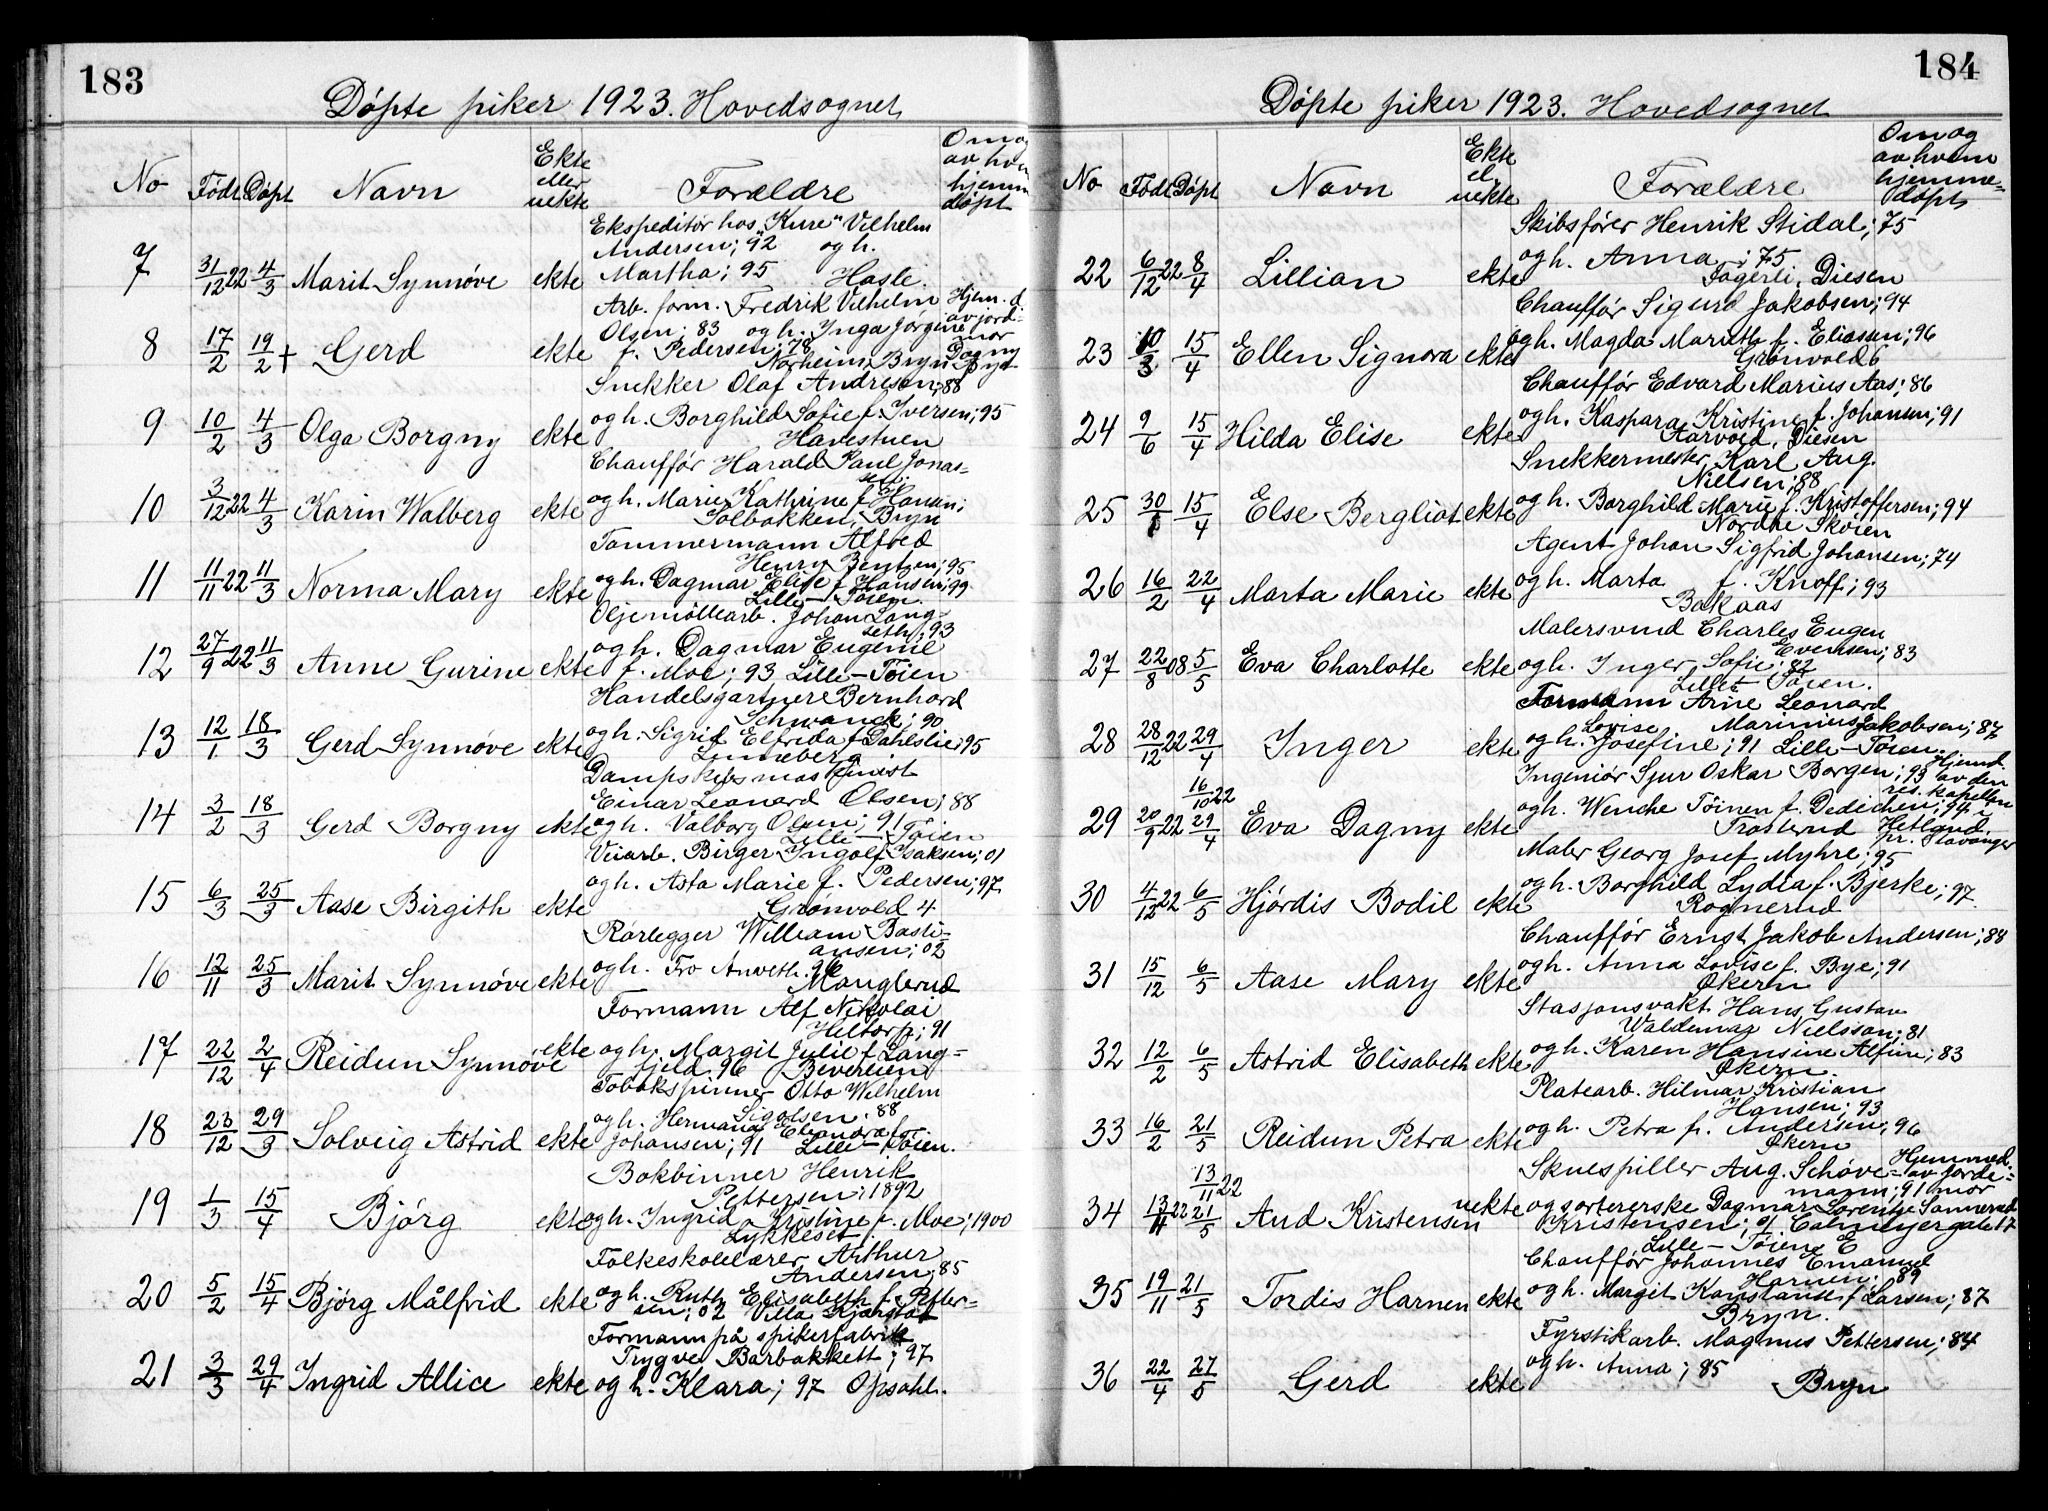 183
Døpte piker 1923. Hovedsognet
No Født Døpt Navn Ekte eller uekte Forældre Om og av hvem hjemmedøpt
Ekspeditør hos "Kure" Vilhelm
Andersen; 92 og h.
7 31/12 22 4/3 Marit Synnøve ekte Martha; 95 Hasle.
Arb. form. Fredrik Vilhelm Hjem. d.
Olsen; 83 og h. Inga Jørgine av jordi-
8 17/2 19/2 + Gerd ekte f. Pedersen; 78 mor
Norheim, Bryn Dagny
Snekker Olaf Andresen; 88
9 10/2 4/3 Olga Borgny ekte og h. Borghild Sofie f. Iversen; 95
Havestuen
Chauffør Harald Paul Jonas-
sen
10 3/12 22 4/3 Karin Walberg ekte og h. Marie Kathrine f. Hansen;
Solbakken, Bryn
Tømmermann Alfred
Henry Bentsen; 95
11 11/11 22 11/3 Norma Mary ekte og h. Dagmar Elise f. Hansen; 99
Lille-Tøien.
Oljemøllearb. Johan Lang-
seth; 93
12 27/9 22 11/3 Anne Gurine ekte og h. Dagmar Eugenie
f. Moe; 93 Lille-Tøien
Handelsgartner Bernhard
Schwanck; 90
13 12/1 18/3 Gerd Synnøve ekte og h. Sigrid Elfrida f. Dahlslie; 95
Linneberg
Dampskibsmaskinist
Einar Leonard Olsen; 88
14 3/2 18/3 Gerd Borgny ekte og h. Valborg Olsen; 91
Lille-Tøien
Veiarb. Birger Ingolf Isaksen; 01
15 6/3 25/3 Aase Birgith ekte og h. Asta Marie f. Pedersen; 97
Grønvold 4
Rørlegger William Basti-
ansen; 02
16 12/11 25/3 Marit Synnøve ekte og h.
Manglerud
Formann Alf Nikolai
Heltorp; 91
17 22/12 2/4 Reidun Synnøve ekte og h. Margit Julie f. Lang-
fjeld 96 Beverveien
Tobakspinner Otto Wilhelm
Sigolsen. 88
18 23/12 29/3 Solveig Astrid ekte og h. Hermana Eleonora f.
Johansen; 91 Lille-Tøien.
Bokbinner Henrik
Pettersen; 1892
19 1/3 15/4 Bjørg ekte og h. Ingrid Kristine f. Moe; 1900
Lykkeset
Folkeskolelærer Arthur
Andersen; 85
20 5/2 15/4 Bjørg Målfrid ekte og h. Ruth Elisabeth f. Petter-
sen; 02 Villa
Formann på spikerfabrikk
Trygve Barbakkett; 97
21 3/3 29/4 Ingrid Allice ekte og h. Klara; 97 Opsahl.
184
Døpte piker 1923. Hovedsognet
No Født Døpt Navn Ekte el. uekte Forældre Om og av hvem hjemme-døpt
Skibsfører Henrik Stidal; 75
og h. Anna ; 75
22 6/12 22 8/4 Lillian ekte Fagerli, Diesen
Chauffør Sigurd Jakobsen; 94
23 10/3 15/4 Ellen Signora ekte og h. Magda Marieth f. Eliassen; 96
Grønvold 6
Chauffør Edvard Marius Aas; 86
24 9/6 15/4 Hilda Elise ekte og h. Kaspara Kristine f. Johansen; 91
Aarvold, Diesen
Snekkermester Karl Aug.
Nielsen; 88
25 30/1 15/4 Else Bergliot ekte og h. Borghild Marie f. Kristoffersen; 94
Nordre Skøien
Agent Johan Sigfrid Johansen; 74
26 16/2 22/4 Marta Marie ekte og h. Marta f. Knoff; 93
Bakaas
Malersvend Charles Eugen
Evensen; 83
27 22/8 08 5/5 Eva Charlotte ekte og h. Inger Sofie; 82
Lille-Tøien.
Formann Arne Leonard
Marinius Jakobsen; 87
28 28/12 22 29/4 Inger ekte og h. Lovise Josefine; 91 Lille-Tøien.
Ingeniør Sjur Oskar Borgen; 93 Hjemd. av den
16/10 22 res. kapellan
29 20/9 22 29/4 Eva Dagny ekte og h. Wenche Tøinen f. Dedichen; 94 i
Trosterud Hetland,
pr. Stavanger
Maler Georg Josef Myhre; 95
30 4/12 22 6/5 Hjørdis Bodil ekte og h. Borghild Lydia f. Bjerke; 97.
Rognerud
Chauffør Ernst Jakob Andersen; 88
31 15/12 6/5 Aase Mary ekte og h. Anna Lovise f. Bye; 91
Økern
Stasjonsvakt Hans Gustav
Waldemar Nielsson; 81
32 12/2 6/5 Astrid Elisabeth ekte og h. Karen Hansine Alfine; 83
Økern.
Platearb. Hilmar Kristian
Hansen; 93
33 16/2 21/5 Reidun Petra ekte og h. Petra f. Andersen; 96
Økern
Skuespiller Aug. Schøne- Hjemmed.
13/11 22 mann; 91 av jorde-mor
34 13/11 22 21/5 Aud Kristensen uekte og sortererske Dagmar Lorentze Sannerud
Kristensen; 01 Calmeyergate 17
Lille-Tøien E
Chauffør Johannes Emanuel
Harnen; 89
35 19/11 21/5 Tordis Harnen ekte og h. Margit Konstanse f. Larsen; 87
Bryn.
Fyrstikarb. Magnus Pettersen; 84
36 22/4 27/5 Gerd ekte og h. Anna; 85
Bryn